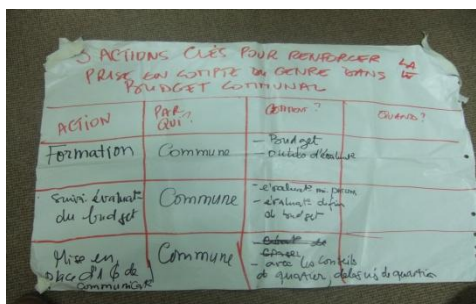 3 ACTIONS CLÉS POUR RENFORCER LA
PRISE EN COMPTE DU GENRE DANS LE
BUDGET COMMUNAL
ACTION
PAR QUI?
COMMENT?
QUAND?
Formation
Commune
- Budget
- outils d'évaluat
Suivi évaluat
du budget
Commune
- évaluat mi
- évaluat
du budget
Mise en
place de
communicat
Commune
- avec les conseils
de quartier, délégués de quartier